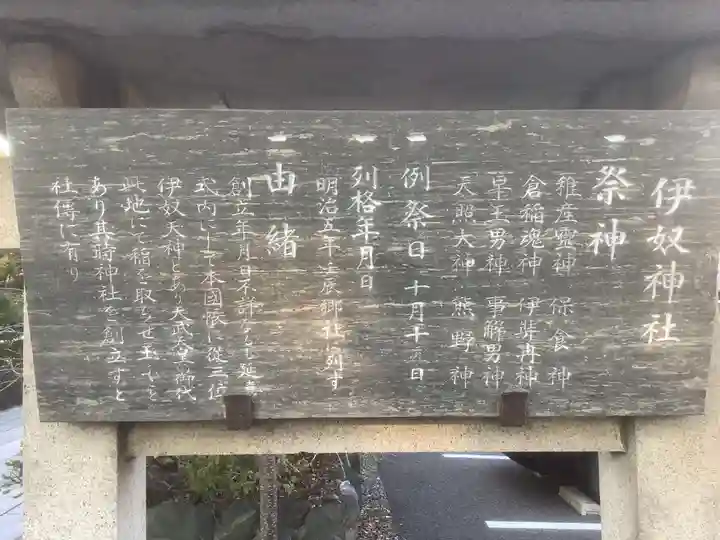 伊奴神社
一 祭神
稚産霊神 保食神
倉稲魂神 伊弉冉神
早玉男神 事解男神
天照大神 熊野神
一 例祭日 十月十五日
一 列格年月日
明治五年壬辰郷社に列す
一 由緒
創立年月日不詳なるも延喜
式内にして本國帳に従三位
伊奴天神とあり天武天皇の御代
此地にて稲を取らせ玉ふこと
あり其時神社を創立すと
社傳に有り